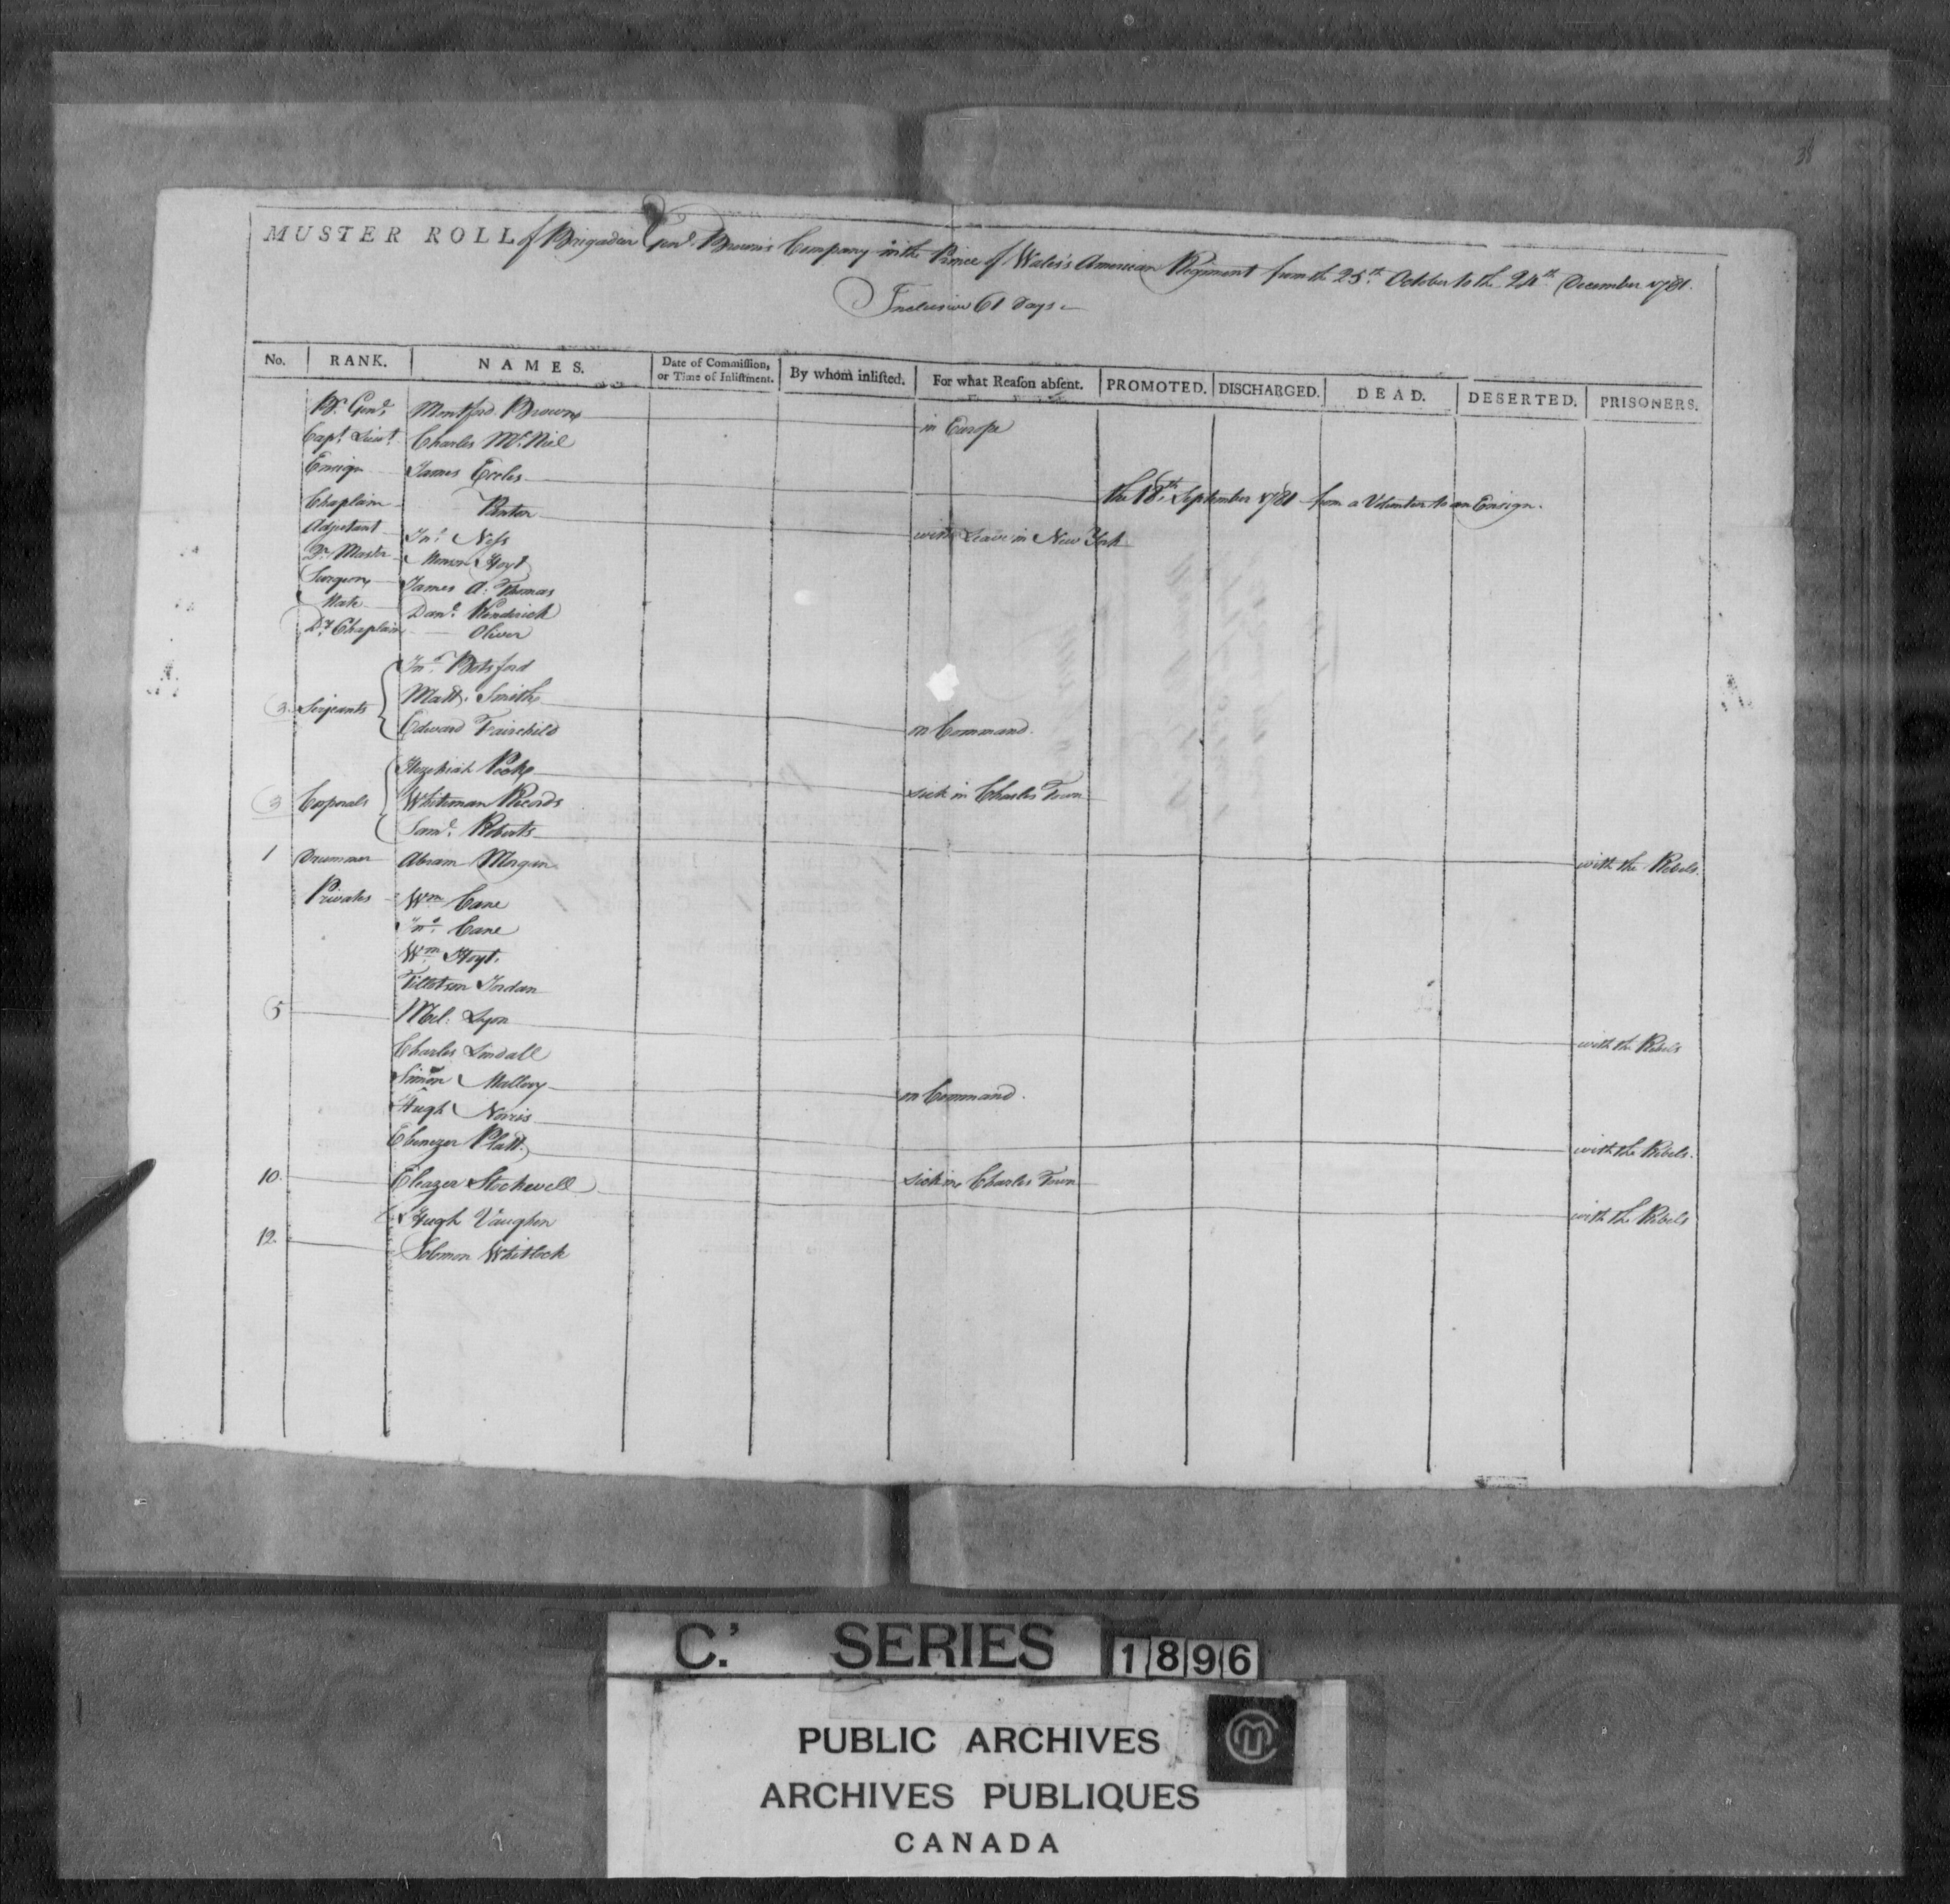 38
MUSTER ROLL of Brigadier Genl. Brown's Company in the Prince of Wales's American Regiment from the 25th October to the 24th December 1781.
Inclusive 61 Days
No. RANK. NAMES. Date of Commission, or Time of Inlistment. By whom inlisted. For what Reason absent. PROMOTED. DISCHARGED. DEAD. DESERTED. PRISONERS.
Br. Genl. Montford Brown in Europe
Capt. Lieut. Charles McNiel
Ensign James Eccles the 18th September 1781 from a Volunteer to an Ensign.
Chaplain with Leave in New York
Adjutant Jno. Ness
Qr. Master Hoyt
Surgeon James A. Thomas
Mate Danl. Kendrick
Dy. Chaplain Oliver
Jno. Botsford
3 Serjeants Matt. Smith
Edward Fairchild on Command.
Hezekiah sick in Charles Town
3 Corporals Whiteman Records
Saml. Roberts
1 Drummer Abram Morgan with the Rebels.
Privates Wm Cane
Jno. Cane
Wm. Hoyt.
Tillotson Jordan
5 Mil: Lyon with the Rebels
Charles Lindall
Simon Mallory on Command.
Hugh Norris with the Rebels.
Ebenezer Platt sick in Charles Town
10. Eleazer Stockwell with the Rebels
Hugh Vaughn
12. Solomon Whitlock
C.' SERIES 1896
PUBLIC ARCHIVES
ARCHIVES PUBLIQUES
CANADA